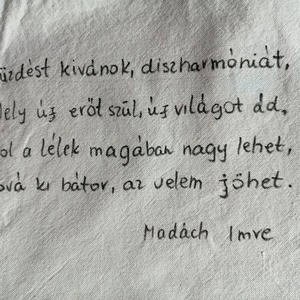 üzdést kivánok, diszharmóniát,
ely új erőt szül, új világot ád,
ol a lélek magában nagy lehet,
ová ki bátor, az velem jöhet.
Madách Imre